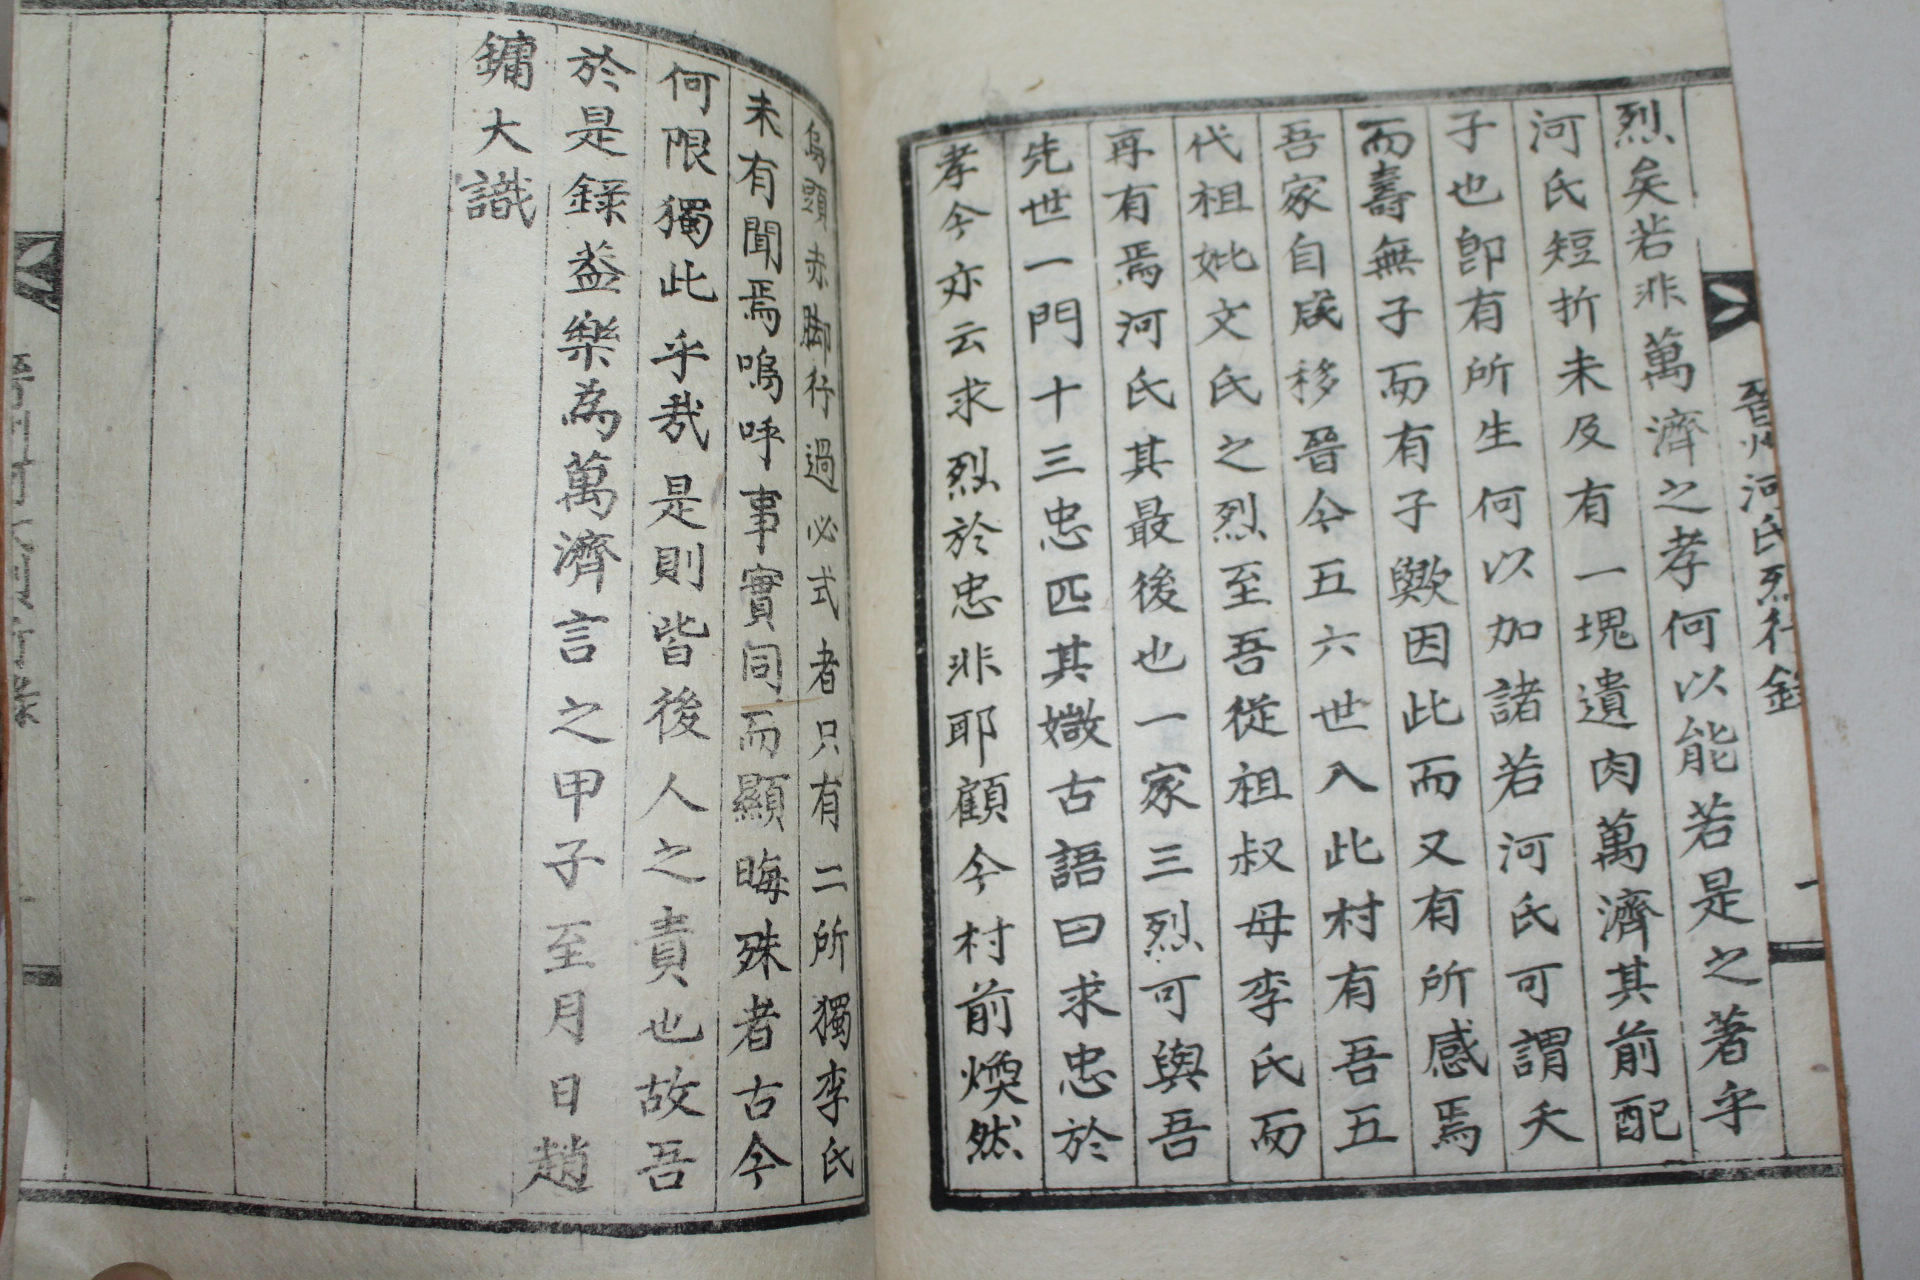 晉州河氏烈行錄
一
烈矣若非萬濟之孝何以能若是之著乎
河氏短折未及有一塊遺肉萬濟其前配
子也卽有所生何以加諸若河氏可謂夭
而壽無子而有子歟因此而又有所感焉
吾家自咸移晉今五六世入此村有吾五
代祖妣文氏之烈至吾從祖叔母李氏而
再有焉河氏其最後也一家三烈可與吾
先世一門十三忠匹其媺古語曰求忠於
孝今亦云求烈於忠非耶顧今村前煥然
烏頭赤脚行過必式者只有二所獨李氏
未有聞焉嗚呼事實同而顯晦殊者古今
何限獨此乎哉是則皆後人之責也故吾
於是錄益樂為萬濟言之甲子至月日趙
鏞大識